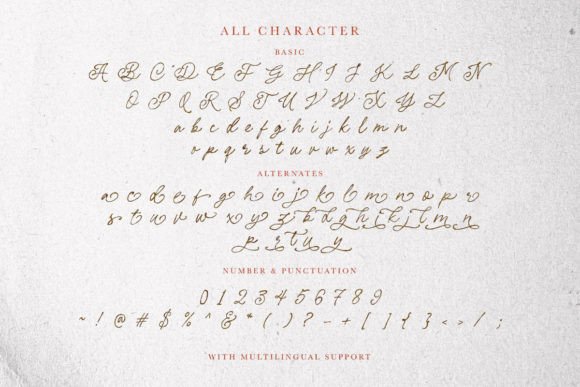 ALL CHARACTER
BASIC
A B C D E F G H I J K L M N
O P Q R S T U V W X Y Z
a b c d e f g h i j k l m n
o p q r s t u v w x y z
ALTERNATES
a c d e f g h i j k l m n o p r
s t u v w x y z b d g h i k j l m n
p r s t u y
NUMBER & PUNCTUATION
0 1 2 3 4 5 6 7 8 9
~ ! @ # $ % ^ & * ( ) ? - + [ ] { } < > / ;
WITH MULTILINGUAL SUPPORT